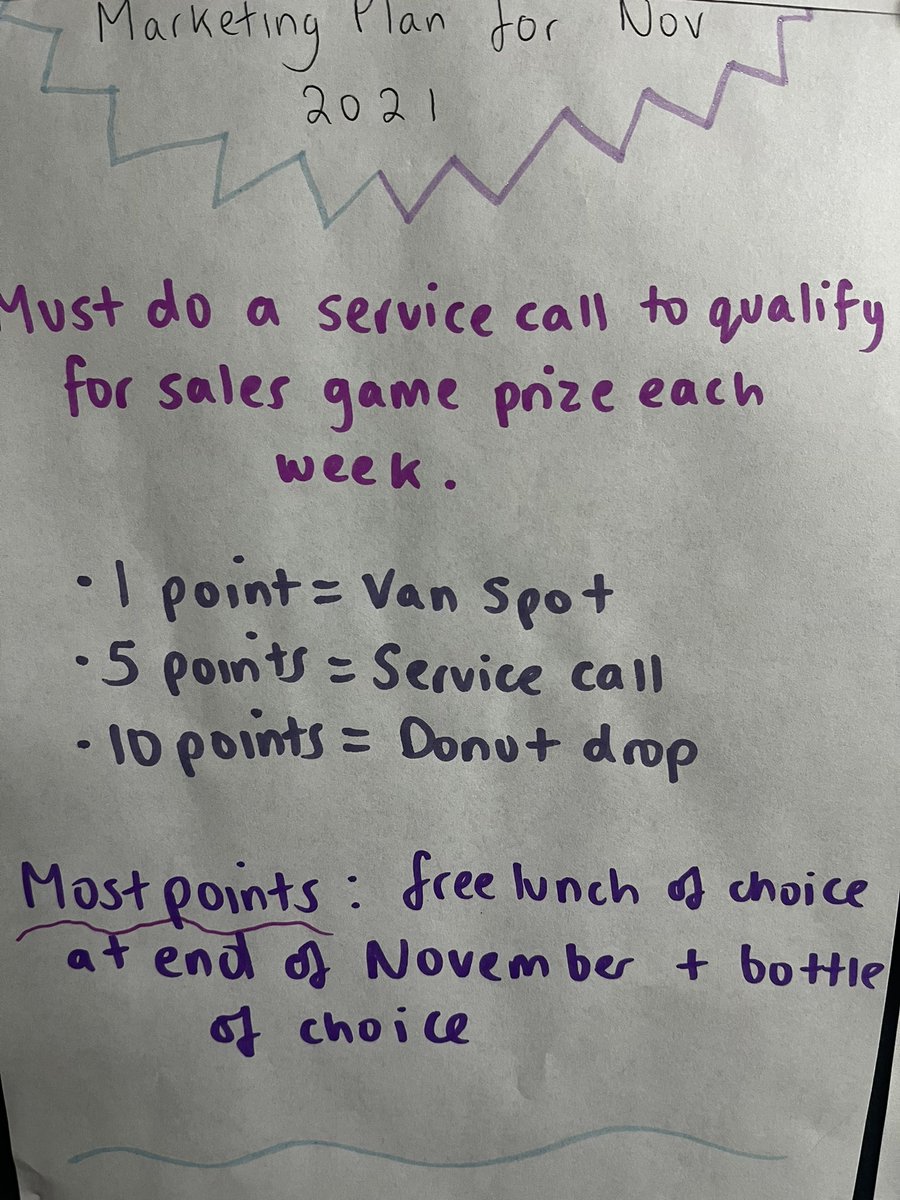 Marketing Plan for Nov
2021
Must do a service call to qualify
for sales game prize each
week.
· 1 point = Van Spot
· 5 points = Service call
· 10 points = Donut drop
Most points : free lunch of choice
at end of November + bottle
of choice